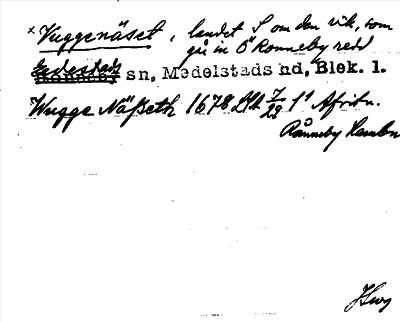 x Vuggenäset, landet S om den vik, som
går in Ö Ronneby redd
Edestads sn, Medelstads hd, Blek. l.
Wugge Näßeth 1678 LM 7/29 1¹ Afritn.
Rånneby Hambn